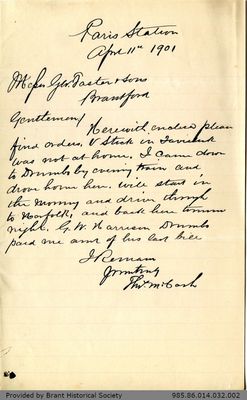 Paris Station
April 11th 1901
Geo. Foster & Sons
Brantford
Gentlemen/
Herewith enclose please
find orders, V Stuck in
was not at home. I came down
to Drumbo by evening train and
drove home here. will start in
the morning and drive through
to Norfolk, and back here tomorrow
night. G. W. Harrison Drumbo
paid me amt of his last bill
I Remain
Yours truly
Thos McCosh
Provided by Brant Historical Society
985.86.014.032.002